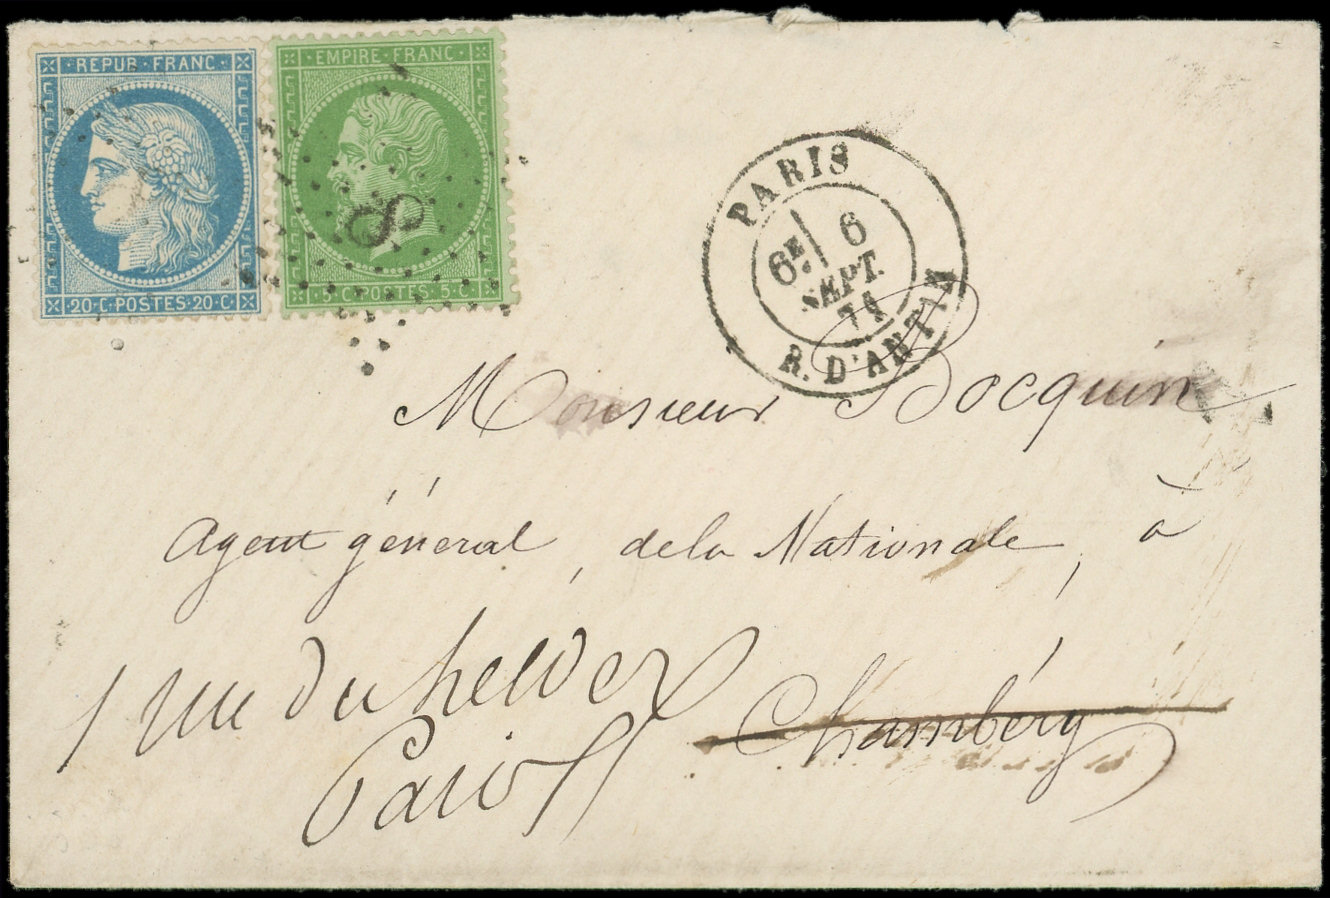 REPUB·FRANC·
20·C·POSTES·20·C·
EMPIRE·FRANC·
5·C·POSTES·5·C·
8
PARIS
6E 6
SEPT.
71
R. D'ANTIN
Monsieur Bocquin
Agent général, de la Nationale, à
Chambéry
1 rue du helder
Paris